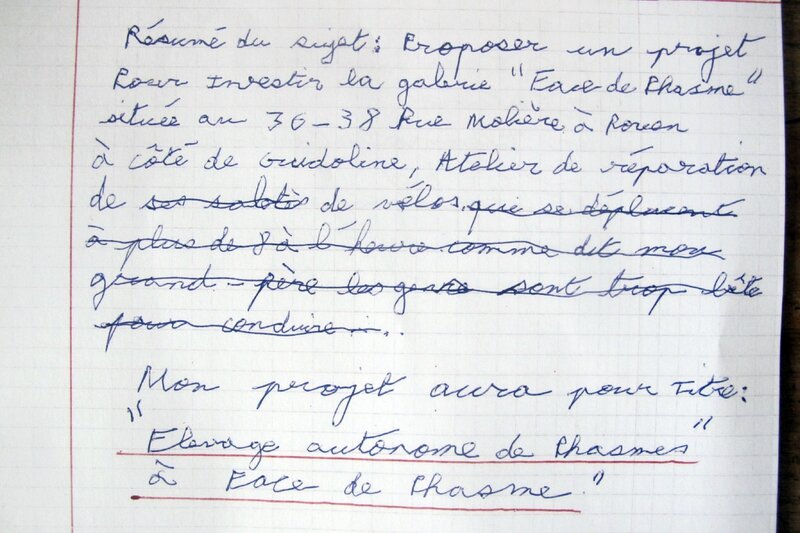 Résumé du sujet : Proposer un projet
Pour Investir la galerie "Face de Phasme"
située au 36-38 Rue Molière à Rouen
à côté de Guidoline, Atelier de réparation
de ses saletés de vélos que se déplacent
à plus de 8 à l'heure comme dit mon
grand-père les gens sont trop bête
pour conduire...
Mon projet aura pour Titre :
"Elevage autonome de Phasmes"
à Face de Phasme."